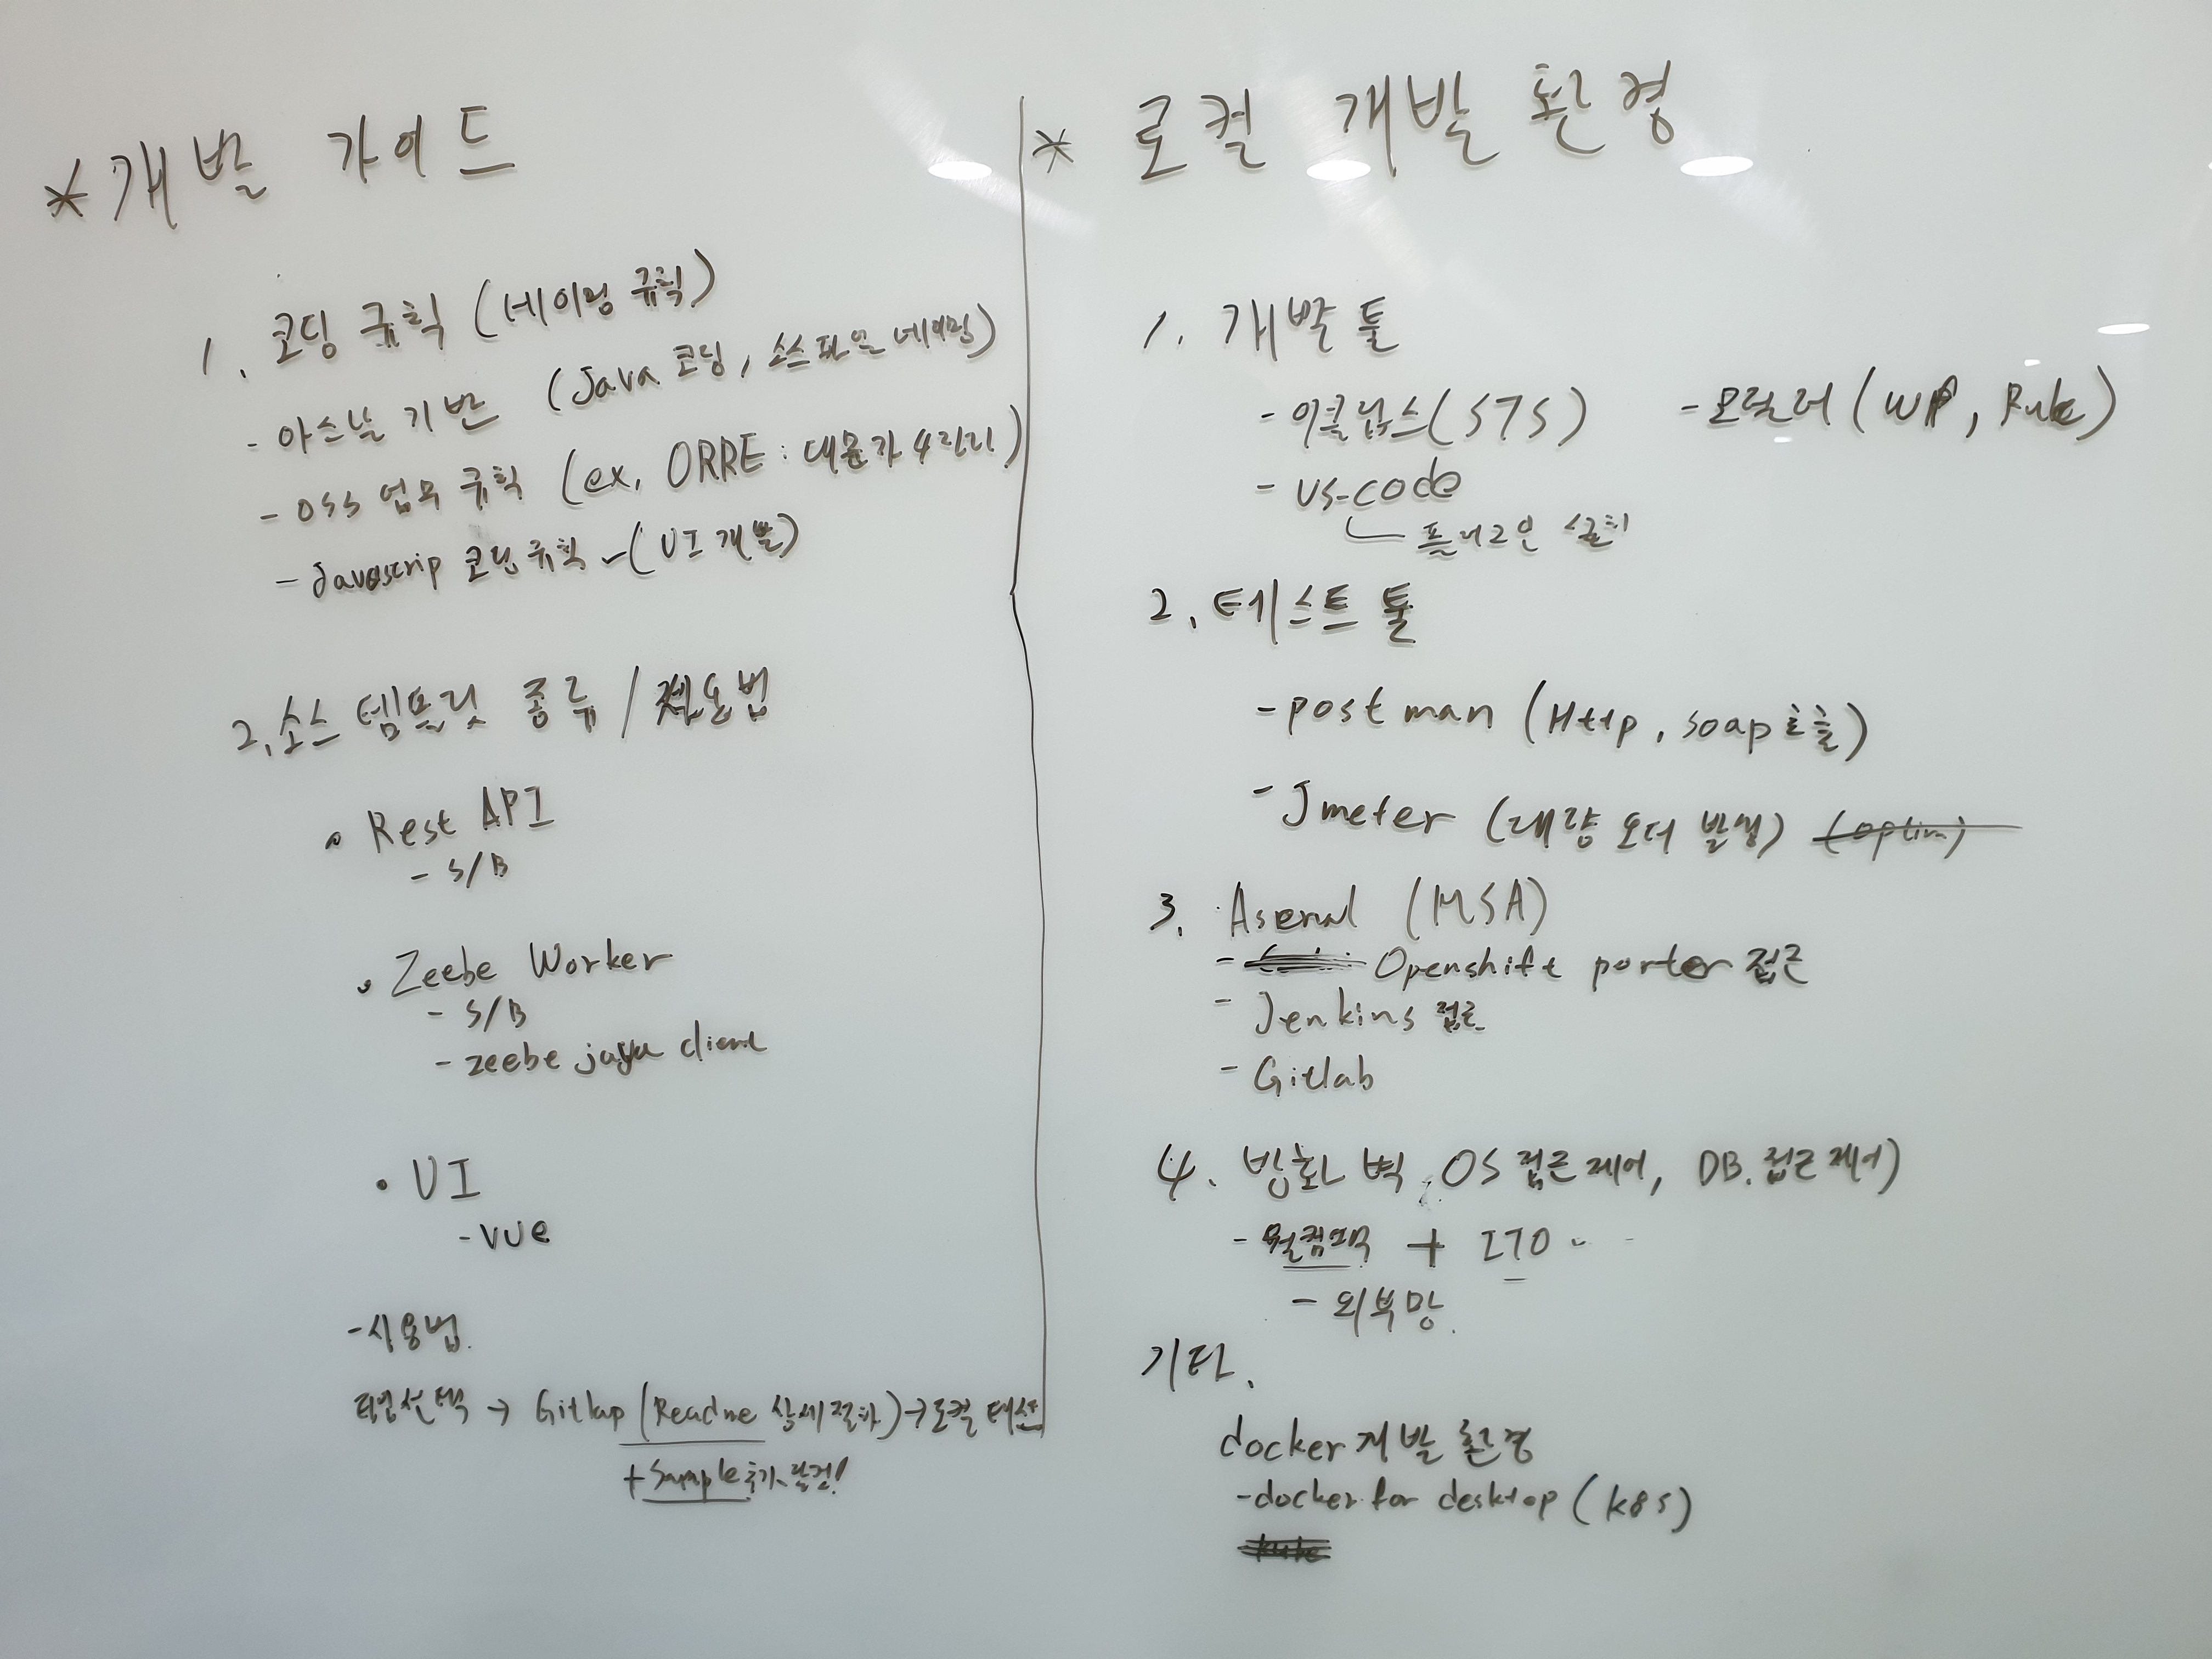 *개발 가이드
1. 코딩 규칙 (네이밍 규칙)
- 아스널 기반 (Java 코딩, 소스파일 네이밍)
- OSS 업무 규칙 (ex, ORRE : 대문자 4자리)
- Javascrip 코딩규칙 - (UI 개발)
2. 소스 템플릿 종류 / 적용법
• Rest API
- S/B
• Zeebe Worker
- S/B
- zeebe java client
• UI
- vue
- 사용법.
타입선택 → Gitlap (Readme 상세절차) → 로컬 테스트
+ Sample 추가 발견!
* 로컬 개발 환경
1. 개발 툴
- 이클립스(STS) - 모델러 (WF, Rule)
- VS-code
플러그인 설치
2. 테스트 툴
- postman (Http, soap 호출)
- Jmeter (대량 오더 발생) (option)
3. Asenal (MSA)
- Openshift porter 접근
- Jenkins 접근
- Gitlab
4. 방화벽, OS 접근제어, DB. 접근제어)
- 웰컴팩 + ITO
- 외부망.
기타.
docker 개발 환경
- docker for desktop (k8s)
kube